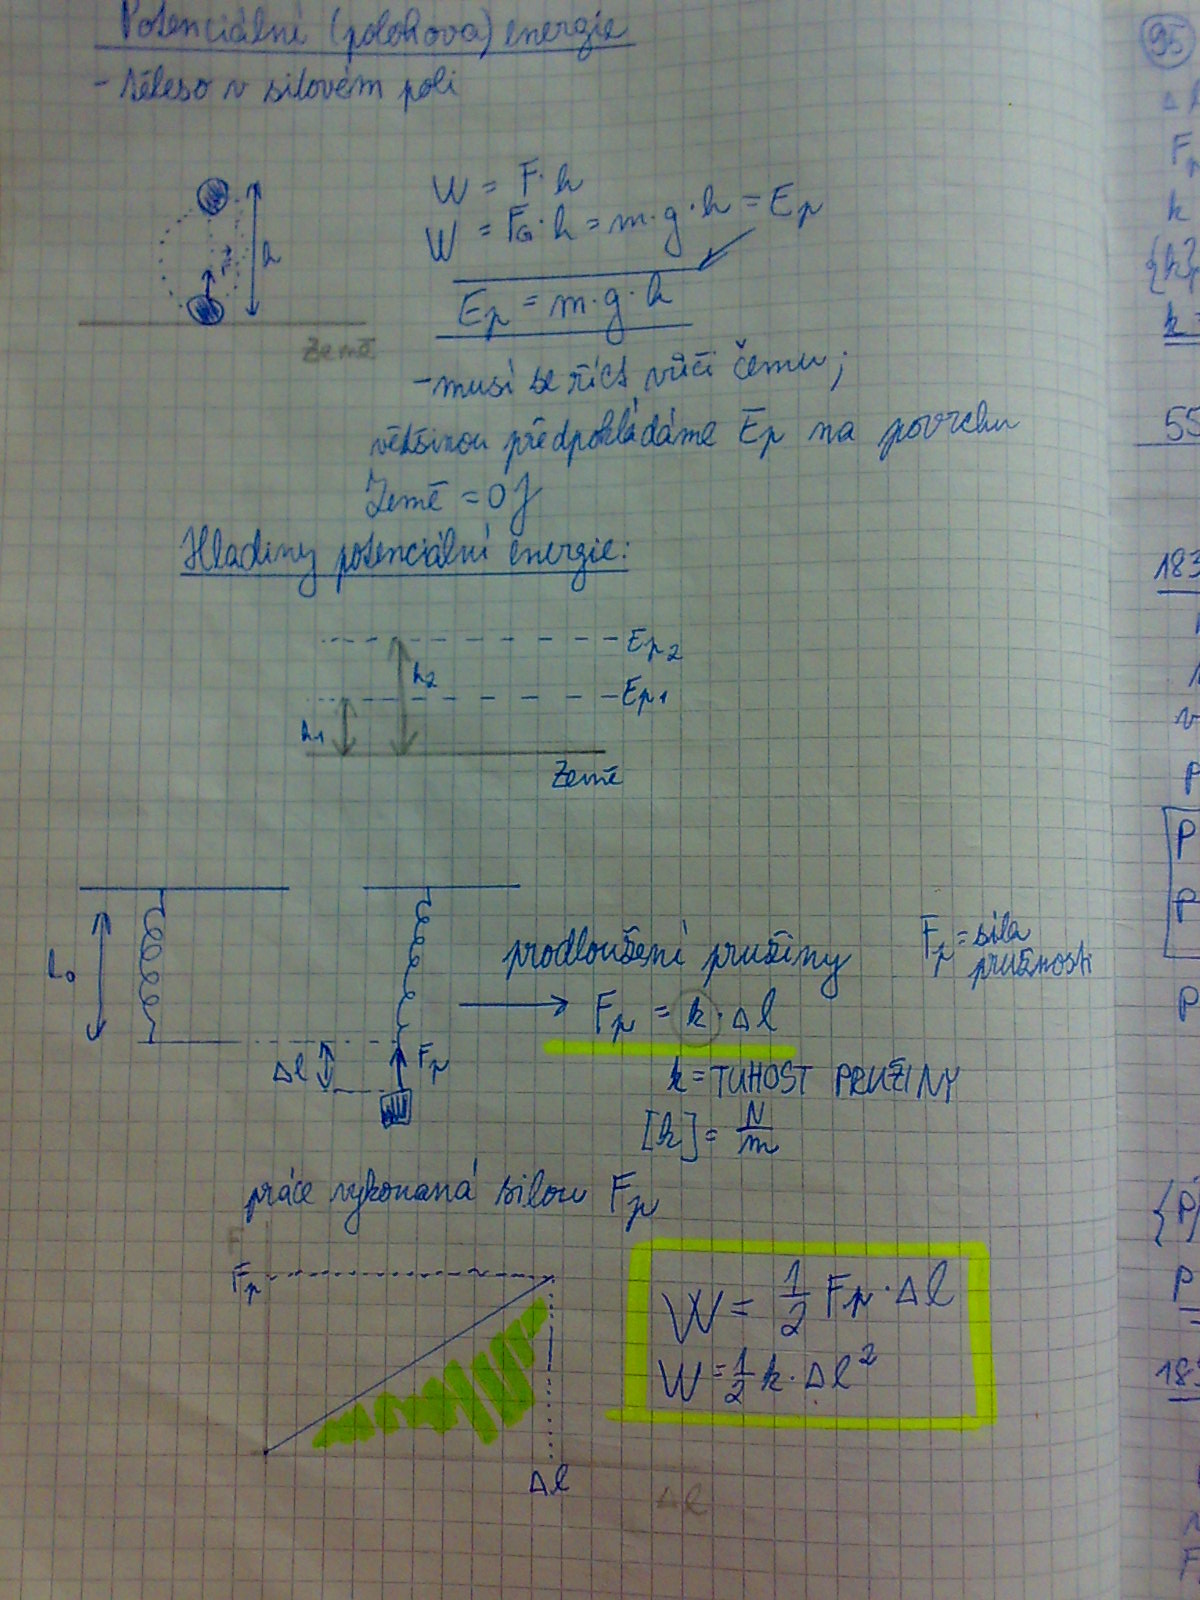 Potenciální (polohová) energie
- těleso v silovém poli
W = F · h
W = FG · h = m · g · h = Ep
Ep = m · g · h
h
F
Země
- musí se říct vůči čemu;
většinou předpokládáme Ep na povrchu
Země = 0 J
Hladiny potenciální energie:
Ep2
h2
Ep1
h1
Země
l0
prodloužení pružiny
Fp = síla
pružnosti
Fp = k · Δl
Δl
Fp
k = TUHOST PRUŽINY
[k] = N/m
práce vykonaná silou Fp
F
Fp
W = 1/2 Fp · Δl
W = 1/2 k · Δl²
Δl
Δl
95
Δl
k
k =
55
183
P
P
P
P
{P}
P
183